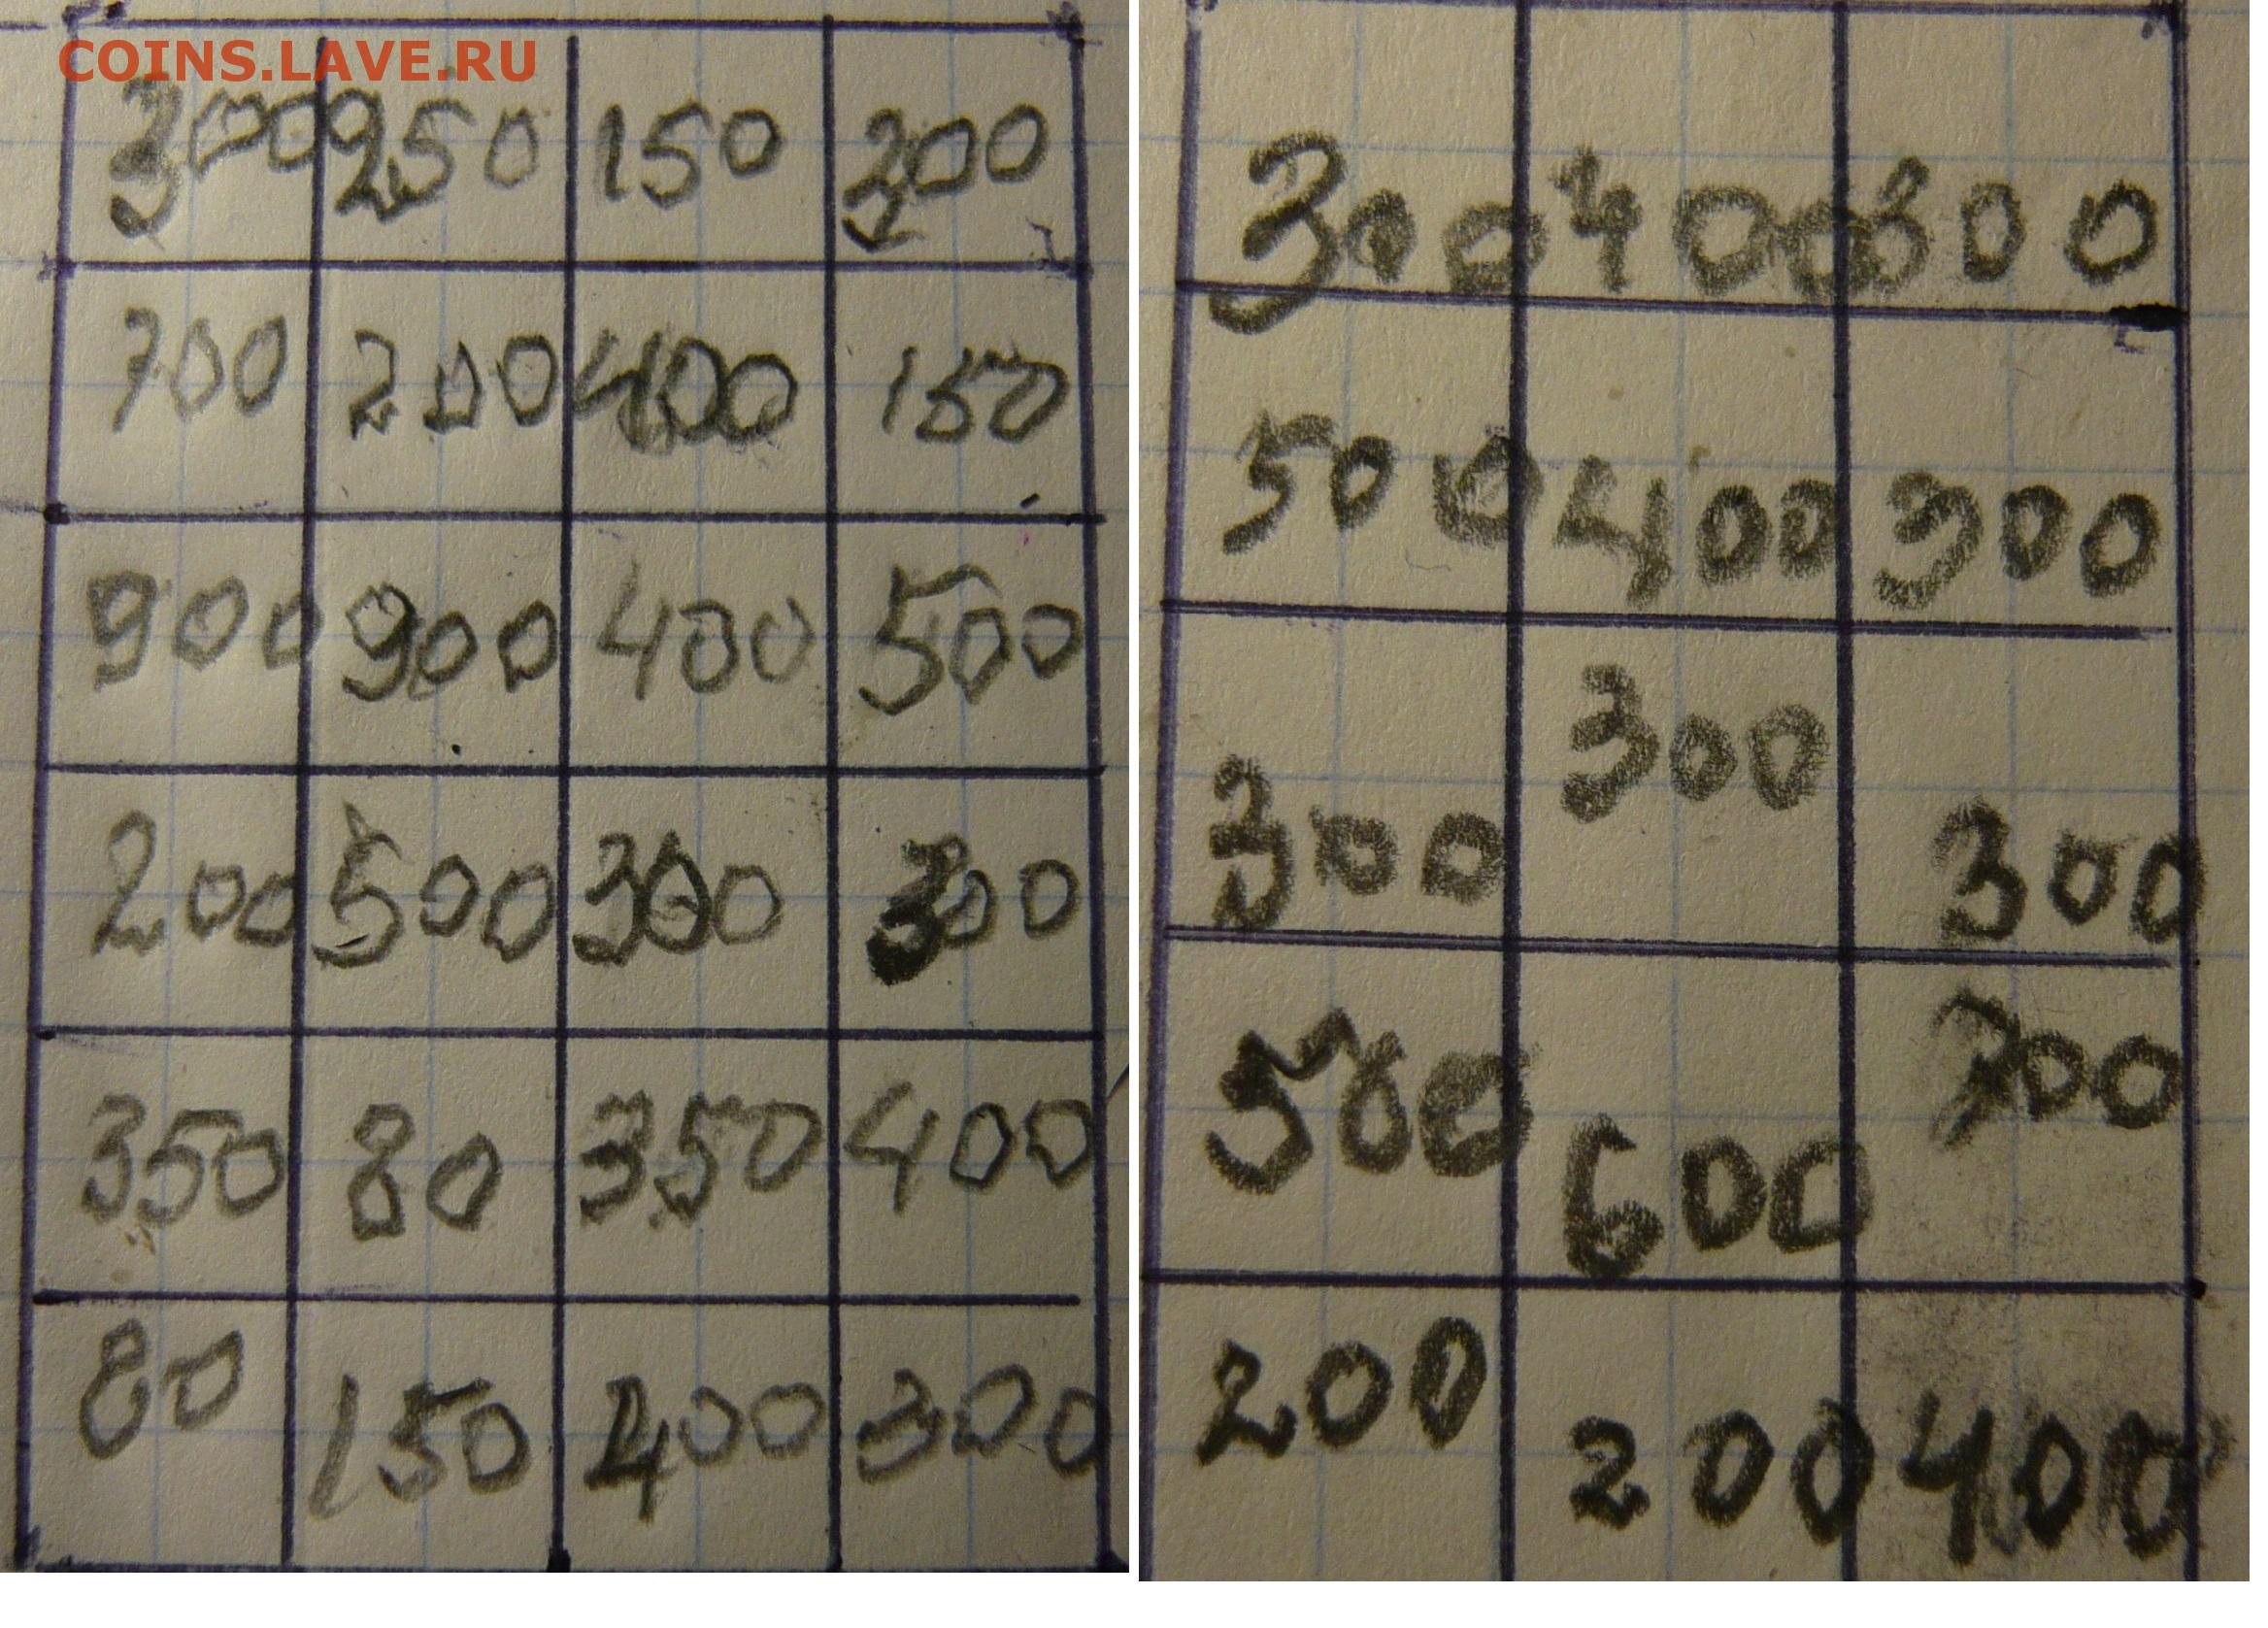 COINS.LAVE.RU
300 250 150 200
700 200 400 150
900 900 400 500
200 500 300 300
350 80 350 400
80 150 400 300
300 400 300
500 400 300
300 300 300
500 600 700
200 200 400